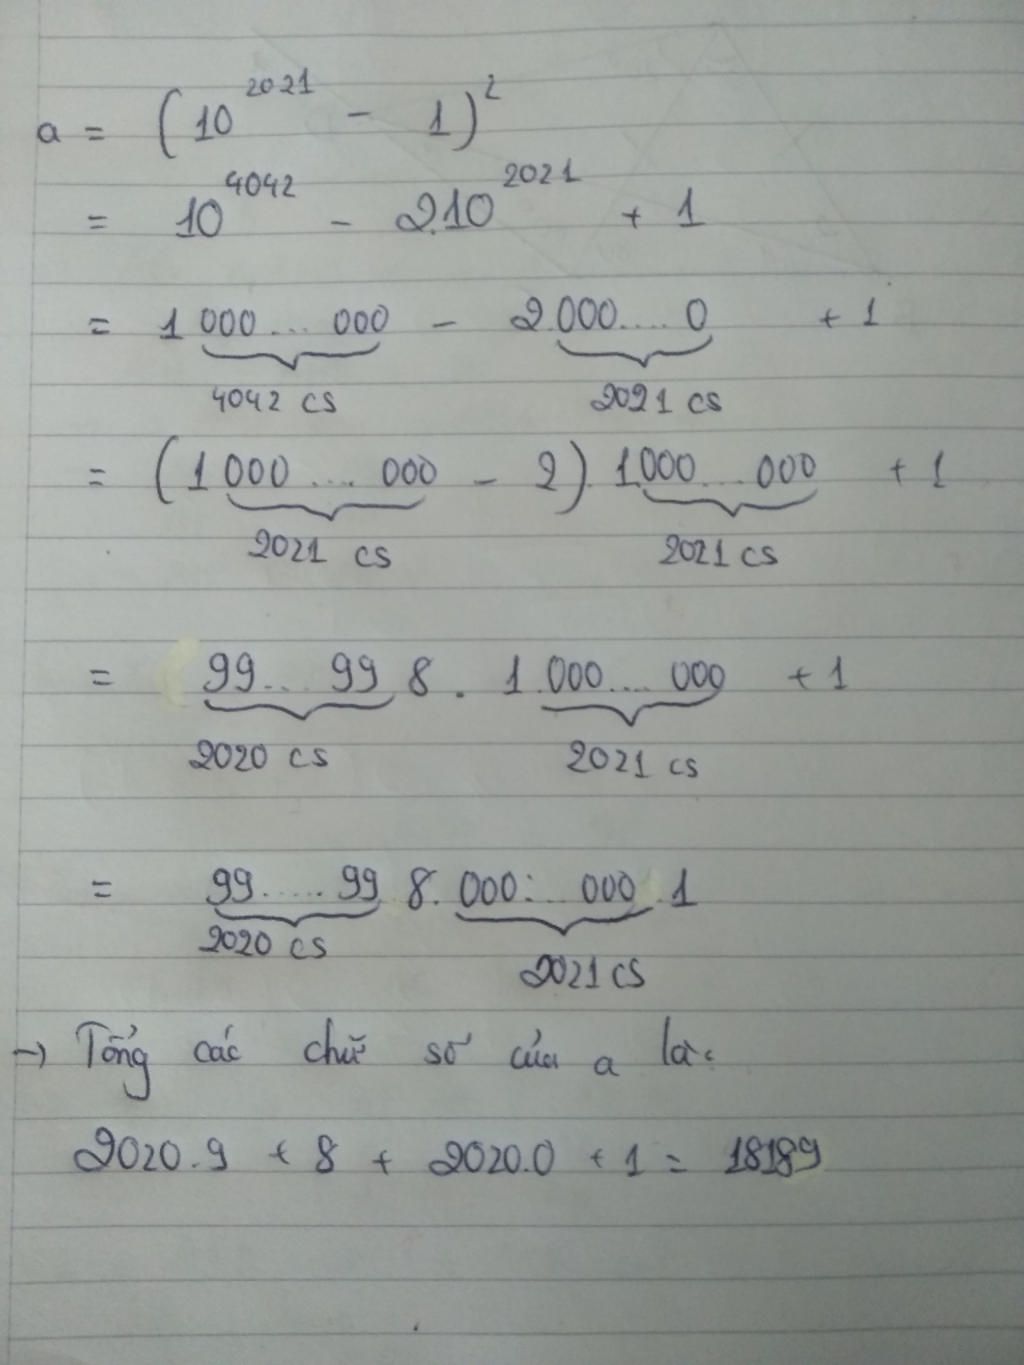 a = (10^2021 - 1)^2
= 10^4042 - 2.10^2021 + 1
= 1 000... 000 - 2.000....0 + 1
4042 cs 2021 cs
= (1 000.... 000 - 2). 1000...000 + 1
2021 cs 2021 cs
= 99... 99 8 . 1.000.... 000 + 1
2020 cs 2021 cs
= 99.....99 8. 000:...000 1
2020 cs
2021 cs
→ Tổng các chữ số của a là:
2020.9 + 8 + 2020.0 + 1 = 18189